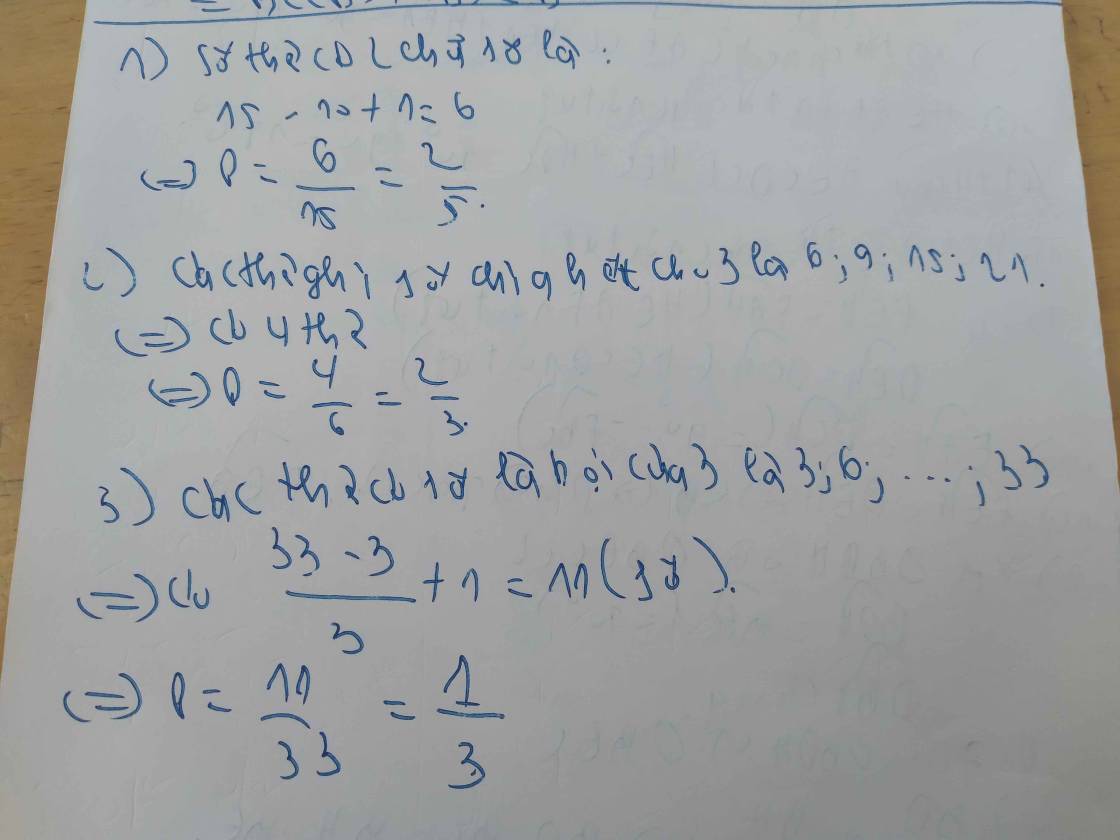 1) Số thẻ có 2 chữ số là:
15 - 10 + 1 = 6
(=) P = 6/15 = 2/5.
2) Các thẻ ghi số chia hết cho 3 là 6; 9; 15; 21.
(=) Có 4 thẻ
(=) P = 4/6 = 2/3.
3) Các thẻ có số là bội của 3 là 3; 6; ...; 33
(=) Có (33 - 3)/3 + 1 = 11 (số).
(=) P = 11/33 = 1/3